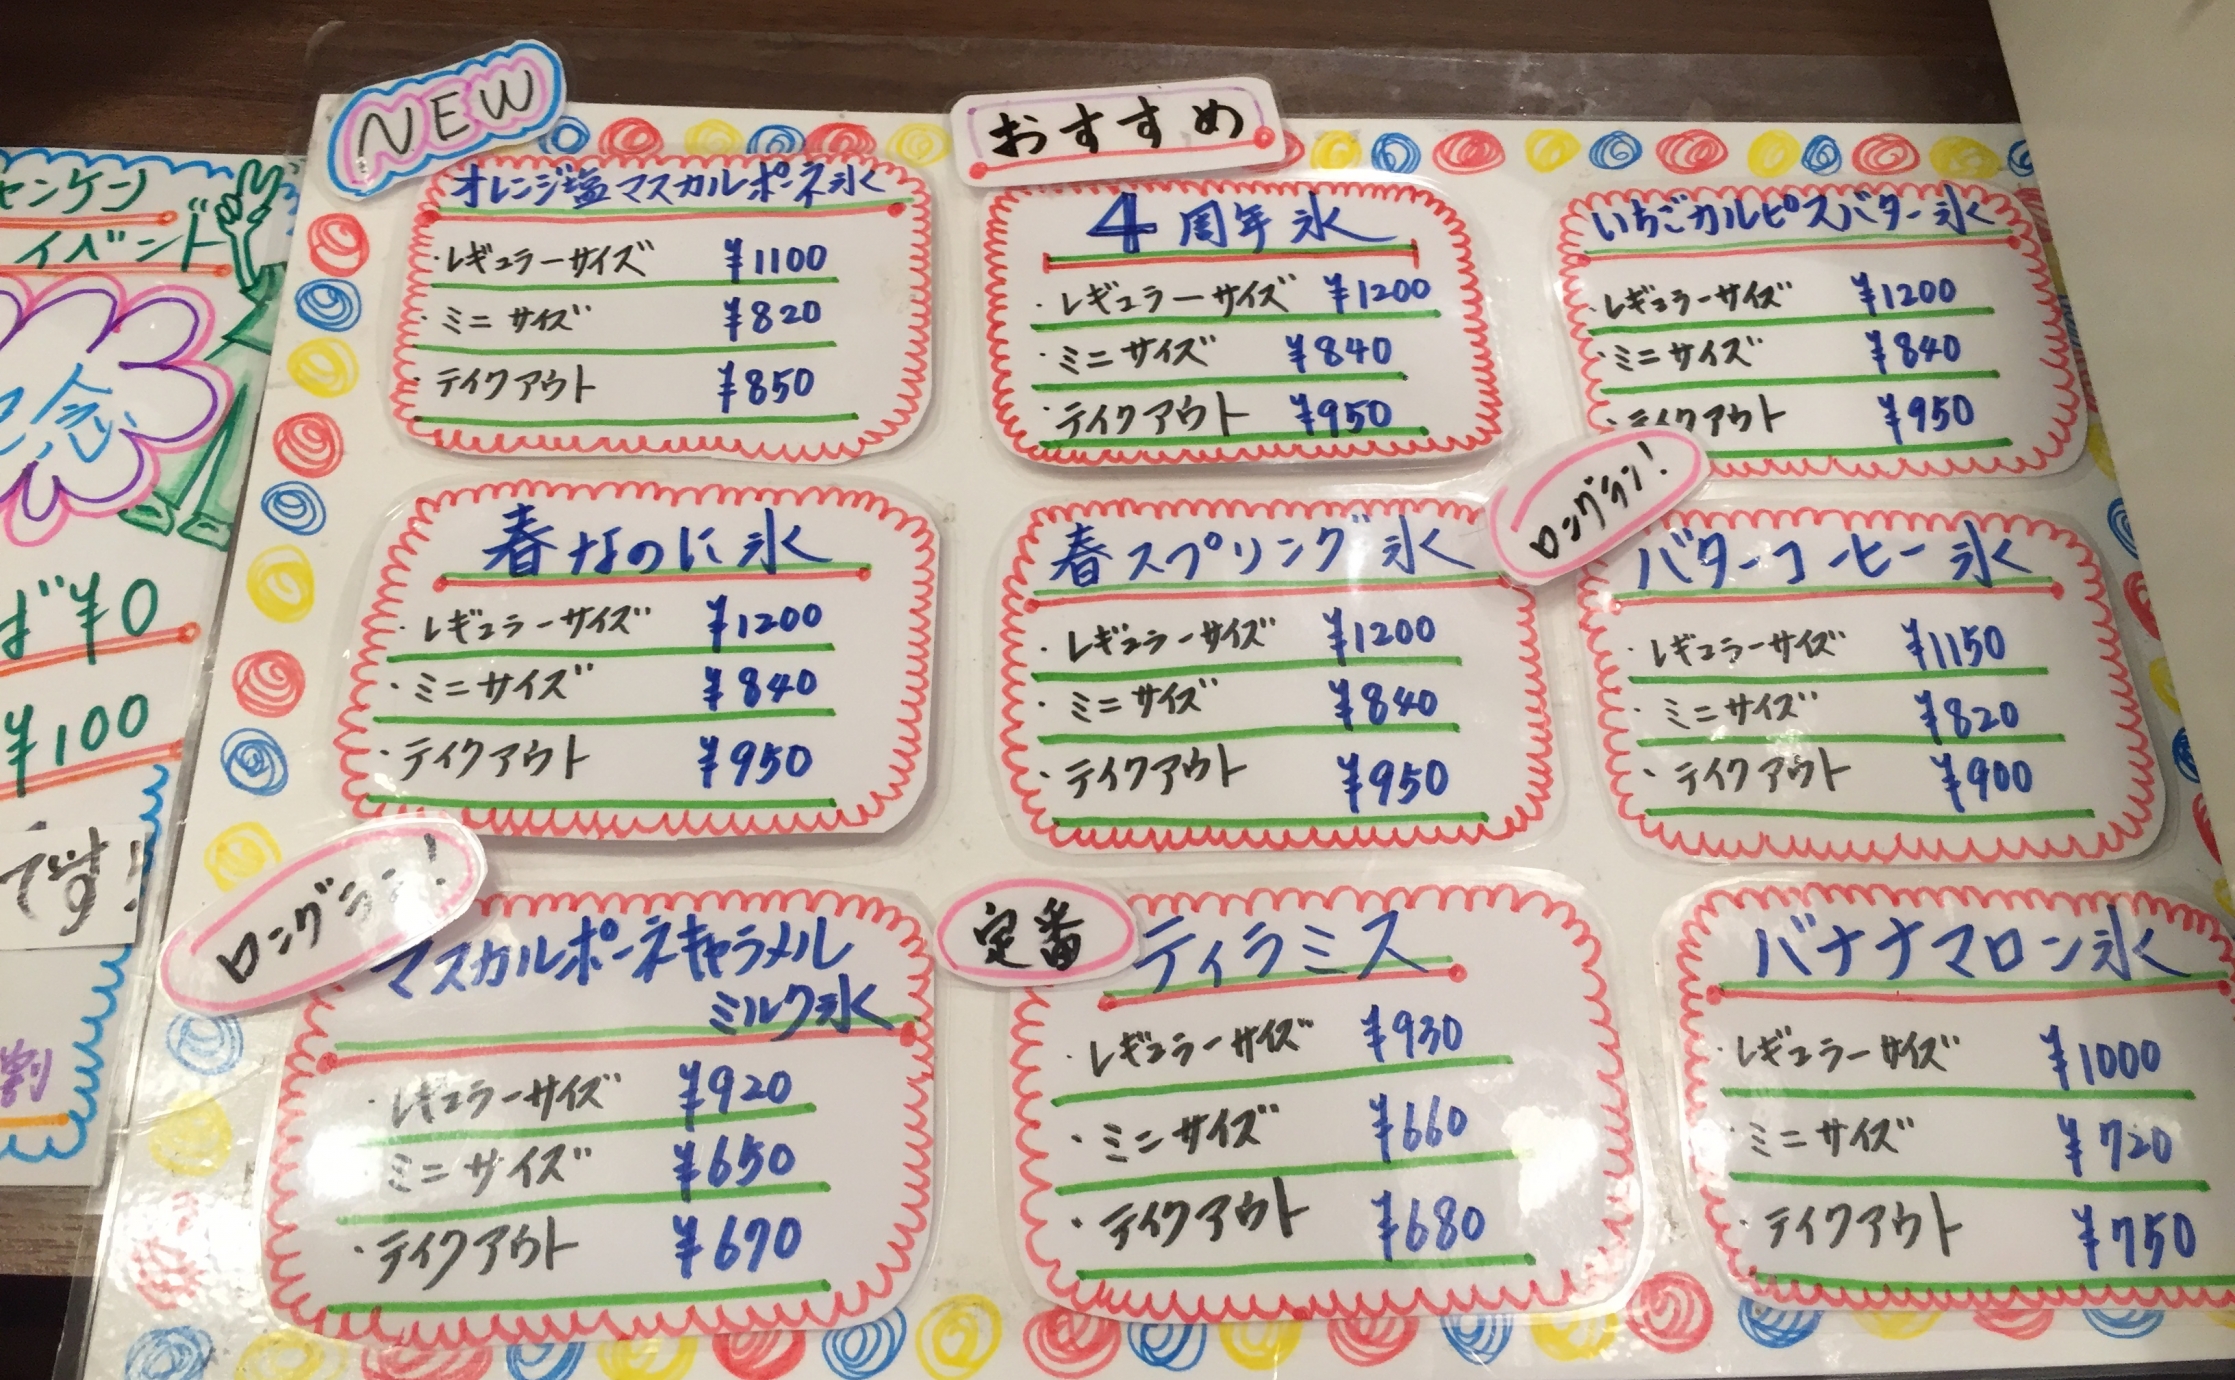 ャンケン
イベント
念
ば ¥0
¥100
です!
割
NEW
オレンジ塩マスカルポーネ氷
・レギュラーサイズ ¥1100
・ミニサイズ ¥820
・テイクアウト ¥850
おすすめ
4周年氷
・レギュラーサイズ ¥1200
・ミニサイズ ¥840
・テイクアウト ¥950
いちごカルピスバター氷
・レギュラーサイズ ¥1200
・ミニサイズ ¥840
・テイクアウト ¥950
春なのに氷
・レギュラーサイズ ¥1200
・ミニサイズ ¥840
・テイクアウト ¥950
春スプリング氷
・レギュラーサイズ ¥1200
・ミニサイズ ¥840
・テイクアウト ¥950
ロングラン!
バターコーヒー氷
・レギュラーサイズ ¥1150
・ミニサイズ ¥820
・テイクアウト ¥900
ロングラン!
マスカルポーネキャラメル
ミルク氷
・レギュラーサイズ ¥920
・ミニサイズ ¥650
・テイクアウト ¥670
定番
ティラミス
・レギュラーサイズ ¥930
・ミニサイズ ¥660
・テイクアウト ¥680
バナナマロン氷
・レギュラーサイズ ¥1000
・ミニサイズ ¥720
・テイクアウト ¥750